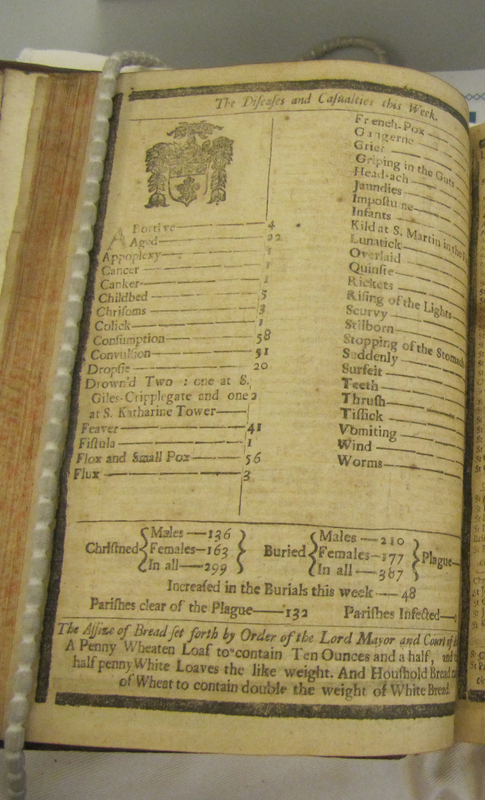 The Diseases and Casualties this Week.
Abortive — 4
Aged — 22
Appoplexy —
Cancer — 1
Canker — 1
Childbed — 5
Chrisoms — 3
Colick — 1
Consumption — 58
Convulsion — 51
Dropsie — 20
Drown'd Two : one at S.
Giles-Cripplegate and one 2
at S. Katharine Tower —
Feaver — 41
Fistula — 1
Flox and Small Pox — 56
Flux — 3
French-Pox —
Gangerne —
Grief —
Griping in the Guts
Head-ach —
Jaundies —
Impostume —
Infants —
Kild at S. Martin in the
Lunatick —
Overlaid —
Quinsie —
Rickets —
Rising of the Lights —
Scurvy —
Stilborn —
Stopping of the Stomach
Suddenly —
Surfeit —
Teeth —
Thrush —
Tissick —
Vomiting —
Wind —
Worms —
Christned { Males — 136 Females — 163 In all — 299 } Buried { Males — 210 Females — 177 In all — 387 } Plague —
Increased in the Burials this week — 48
Parishes clear of the Plague — 132 Parishes Infected —
The Assize of Bread set forth by Order of the Lord Mayor and Court of
A Penny Wheaten Loaf to contain Ten Ounces and a half, and
half penny White Loaves the like weight. And Houshold Bread
of Wheat to contain double the weight of White Bread